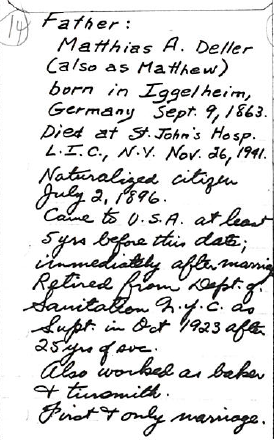 14
Father:
Matthias A. Deller
(also as Matthew)
born in Iggelheim,
Germany Sept. 9, 1863.
Died at St. John's Hosp.
L.I.C., N.Y. Nov. 26, 1941.
Naturalized citizen
July 2, 1896.
Came to U.S.A. at least
5 yrs before this date;
immediately after marriag
Retired from Dept. of
Sanitation N.Y.C. as
Supt. in Oct 1923 after
25 yrs of svc.
Also worked as baker
& tinsmith.
First & only marriage.